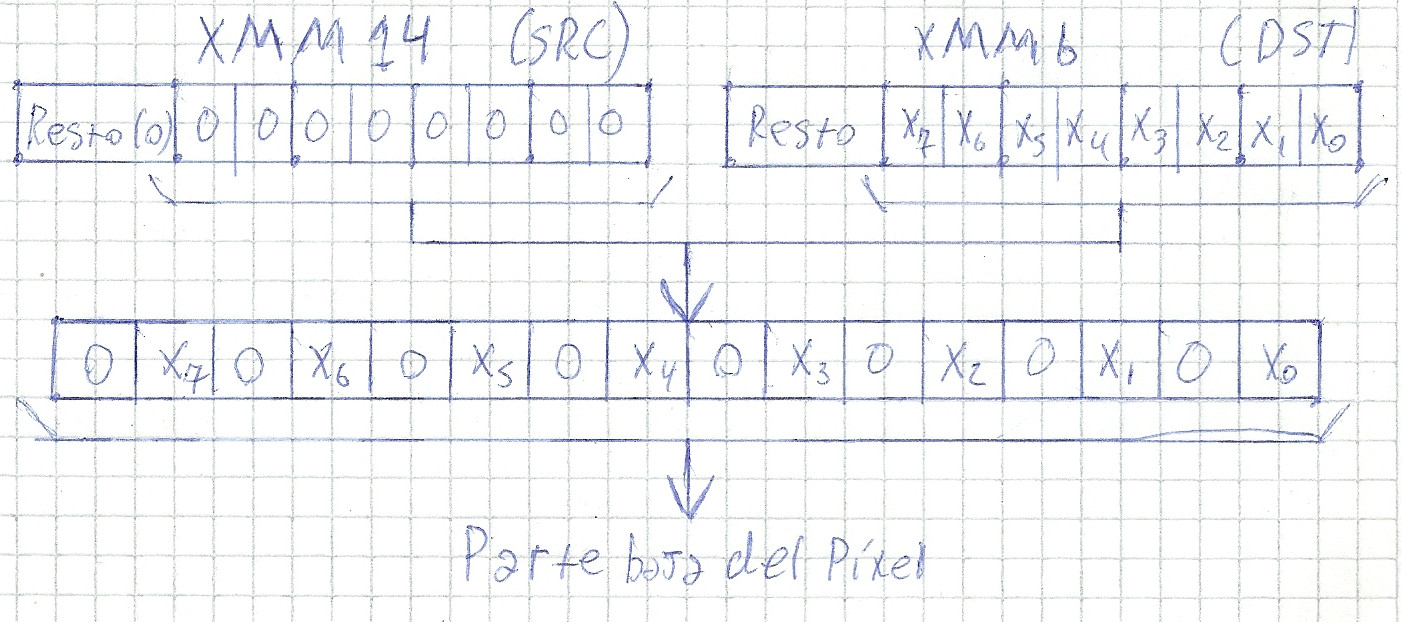 XMM14 (SRC) XMM6 (DST)
Resto(0) 0 0 0 0 0 0 0 0 Resto X7 X6 X5 X4 X3 X2 X1 X0
0 X7 0 X6 0 X5 0 X4 0 X3 0 X2 0 X1 0 X0
Parte baja del Píxel